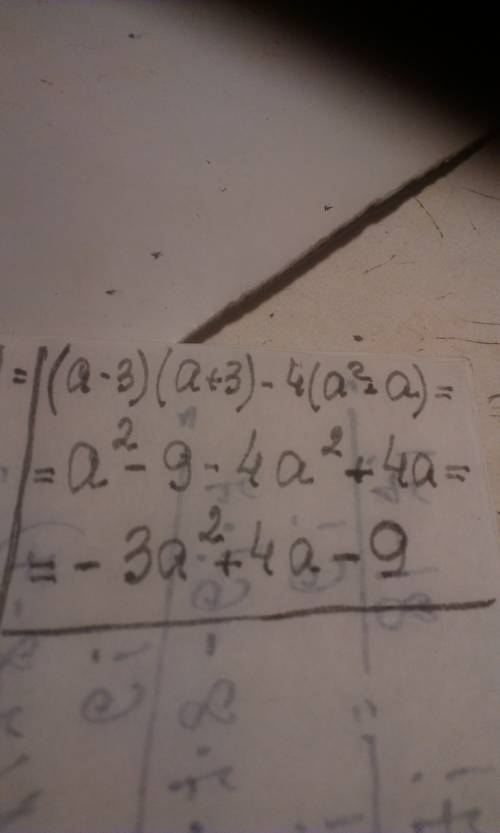 = (a-3)(a+3)-4(a²-a)=
= a²-9-4a²+4a=
= -3a²+4a-9